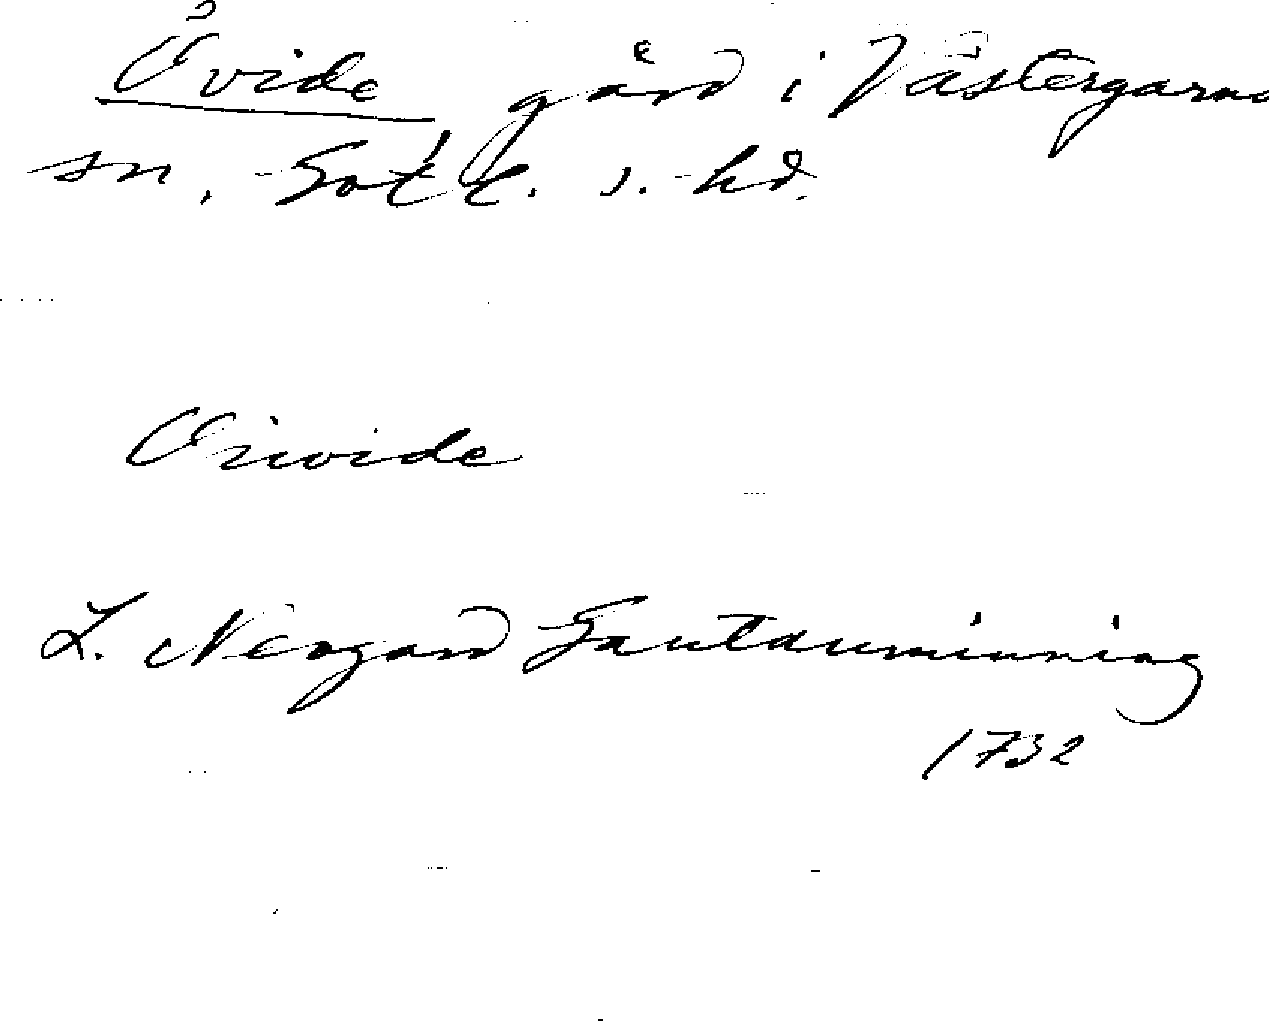 Övide gård i Västergarns
sn. Gotl. s. hd.
Oiwide
L. Neogard Gautauminning
1732